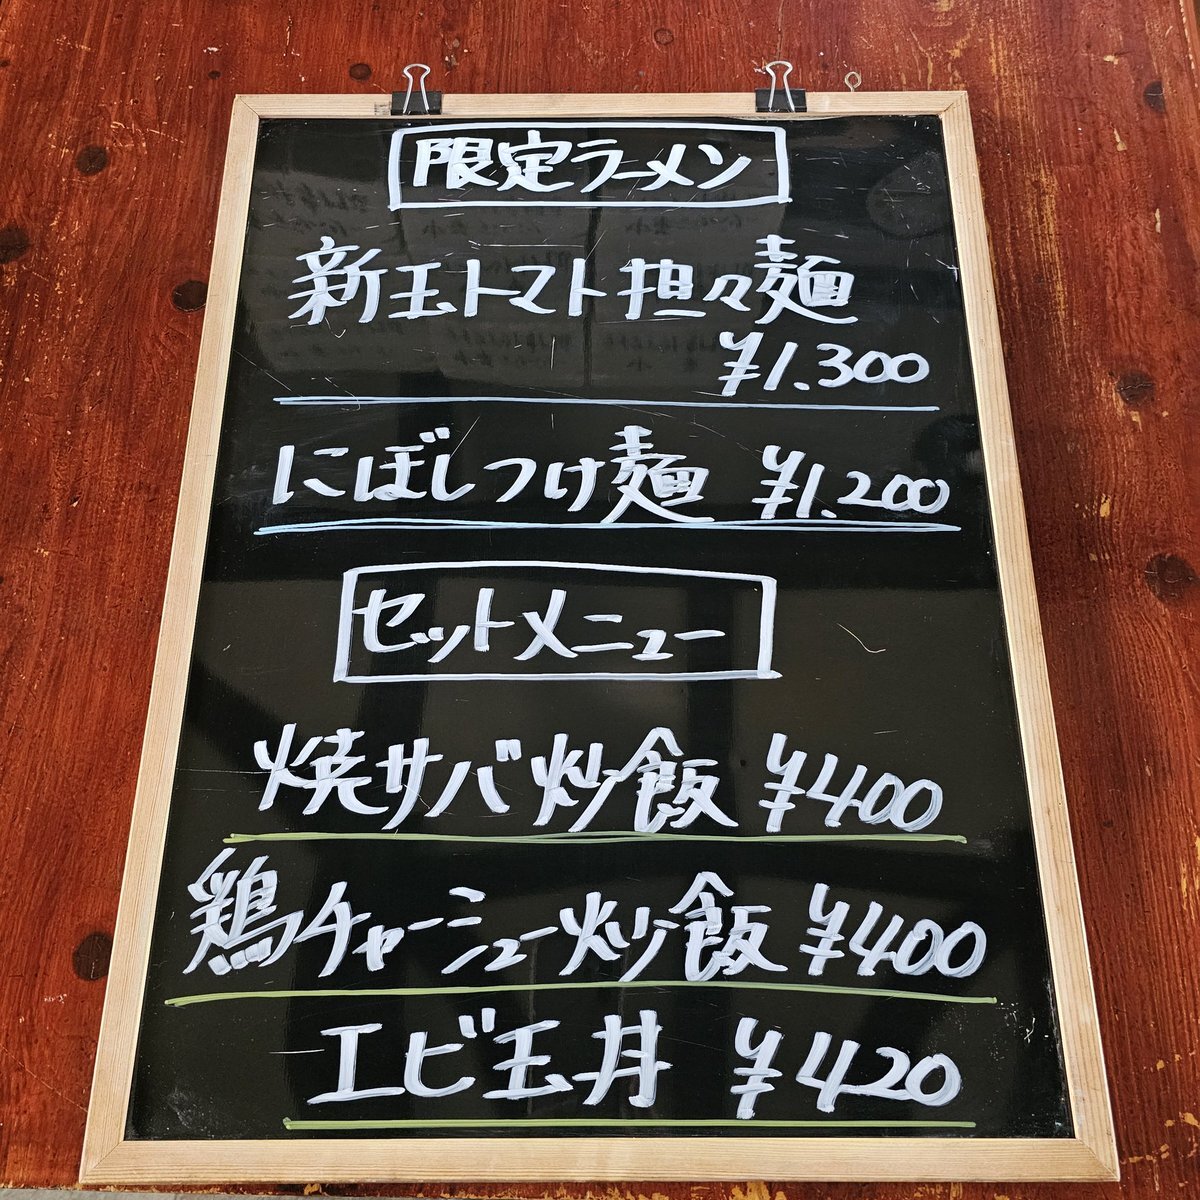 限定ラーメン
新玉トマト担々麺
¥1.300
にぼしつけ麺 ¥1.200
セットメニュー
焼サバ炒飯 ¥400
鶏チャーシュー炒飯 ¥400
エビ玉丼 ¥420